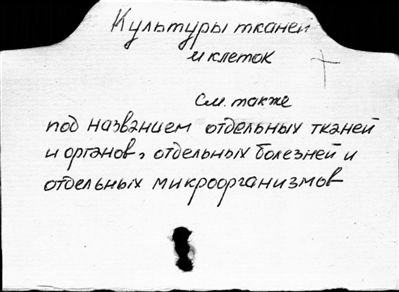 Культуры тканей
и клеток
См. также
под названием отдельных тканей
и органов, отдельных болезней и
отдельных микроорганизмов